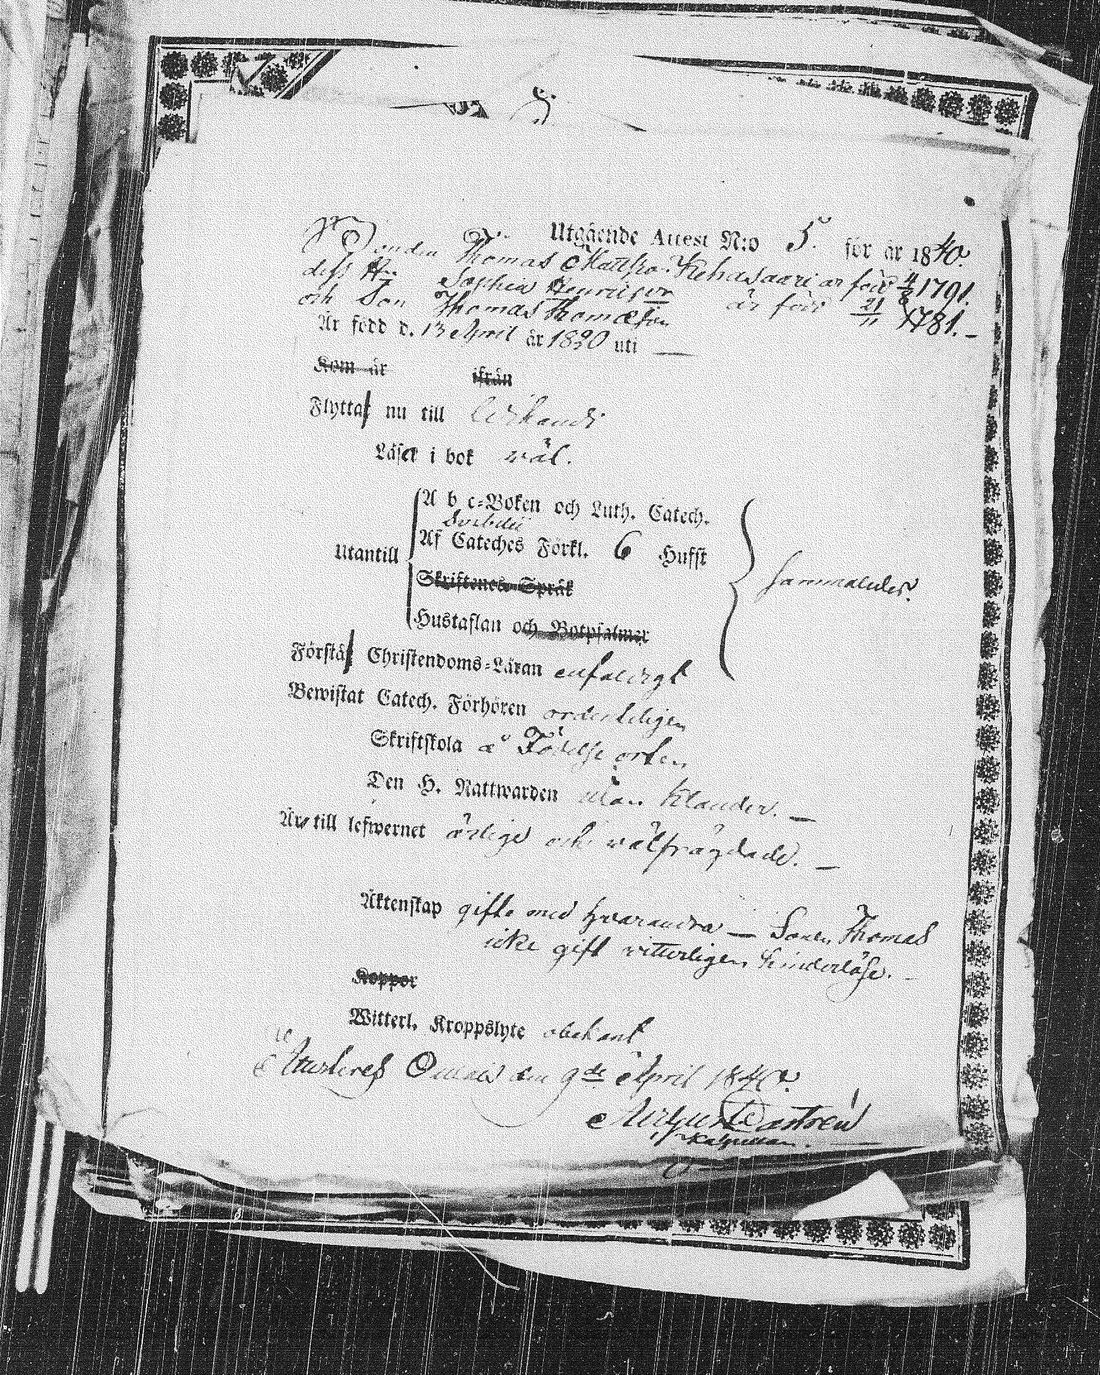 Utgående Attest N:o 5. för år 1840.
Bonden Thomas Mattsson Kehusaari är född 4/8 1791.
dess Hu Sophia Henricsdr är född 21/11 1781. -
och Son Thomas Thomæson
Är född d. 13 April år 1820 uti —
Kom år ifrån
Flyttat nu till
Läser i bok wäl.
A b c-Boken och Luth. Catech.
Svebelii
Utantill Af Cateches Förkl. 6 Hufst
Skriftenes Språk
Hustaflan och Botpsalmer
sammaledes.
Förstår Christendoms-Läran enfaldigt
Bewistat Catech. Förhören ordenteligen
Skriftskola å Födelse orten
Den H. Nattwarden utan klander. —
Är till lefwernet ärlige och wälfrägdade. —
Äktenskap gifte med hvarandra — Sonen Thomas
icke gift vitterligen hinderlöse. -
Koppor
Witterl. Kroppslyte obekant
den 9de April 1840.
August Castrén
Kapellan.